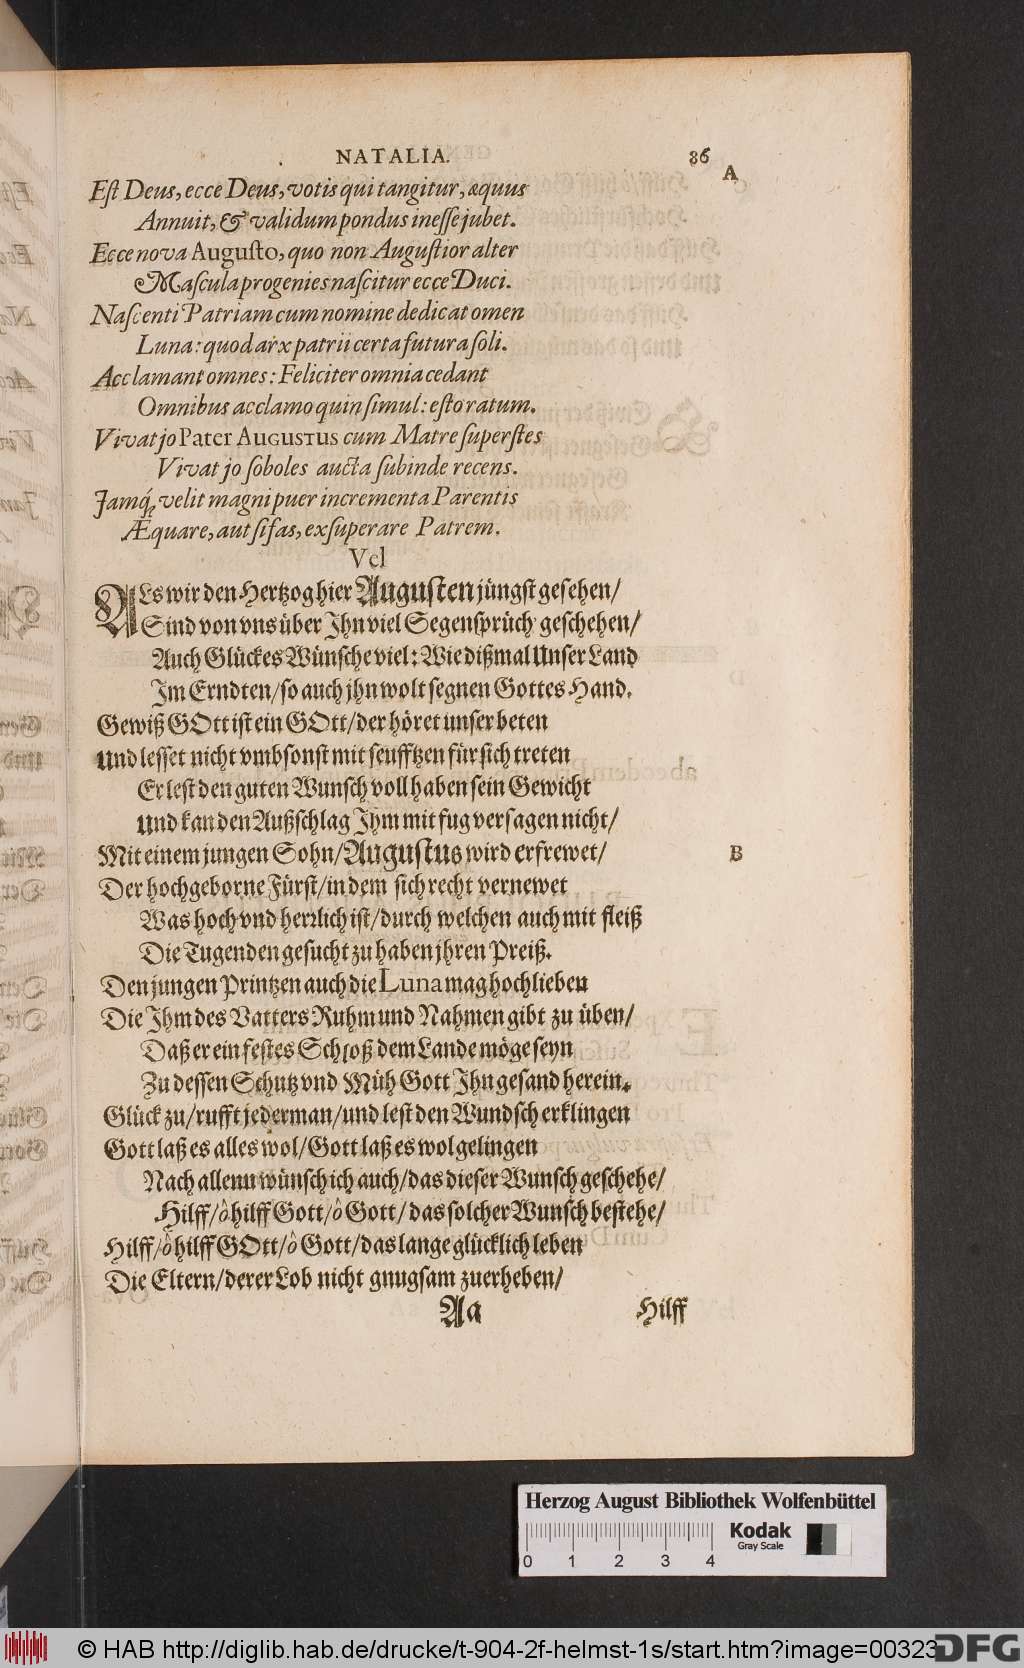 NATALIA. 86
A
Est Deus, ecce Deus, votis qui tangitur, æquus
Annuit, & validum pondus inesse jubet.
Ecce nova Augusto, quo non Augustior alter
Mascula progenies nascitur ecce Duci.
Nascenti Patriam cum nomine dedicat omen
Luna: quod arx patrii certa futura soli.
Acclamant omnes: Feliciter omnia cedant
Omnibus acclamo quin simul: esto ratum.
Vivat jo Pater AUGUSTUS cum Matre superstes
Vivat jo soboles aucta subinde recens.
Jamq́; velit magni puer incrementa Parentis
Æquare, aut si fas, exsuperare Patrem.
Vel
ALs wir den Hertzog hier Augusten jüngst gesehen/
Sind von vns über Jhn viel Segensprüch geschehen/
Auch Glückes Wünsche viel: Wie dißmal Unser Land
Jm Erndten/ so auch jhn wolt segnen Gottes Hand.
Gewiß GOtt ist ein GOtt/ der höret unser beten
Und lesset nicht vmbsonst mit seufftzen für sich treten
Er lest den guten Wunsch voll haben sein Gewicht
Und kan den Außschlag Jhm mit fug versagen nicht/
Mit einem jungen Sohn/ Augustus wird erfrewet/
B
Der hochgeborne Fürst/ in dem sich recht vernewet
Was hoch vnd herrlich ist/ durch welchen auch mit fleiß
Die Tugenden gesucht zu haben jhren Preiß.
Den jungen Printzen auch die Luna mag hochlieben
Die Jhm des Vatters Ruhm und Nahmen gibt zu üben/
Daß er ein festes Schloß dem Lande möge seyn
Zu dessen Schutz vnd Müh Gott Jhn gesand herein.
Glück zu/ rufft jederman/ und lest den Wundsch erklingen
Gott laß es alles wol/ Gott laß es wol gelingen
Nach allenn wünsch ich auch/ das dieser Wunsch geschehe/
Hilff/ ô hilff Gott/ ô Gott/ das solcher Wunsch bestehe/
Hilff/ ô hilff GOtt/ ô Gott/ das lange glücklich leben
Die Eltern/ derer Lob nicht gnugsam zuerheben/
Aa Hilff
Herzog August Bibliothek Wolfenbüttel
Kodak
Gray Scale
0 1 2 3 4
© HAB http://diglib.hab.de/drucke/t-904-2f-helmst-1s/start.htm?image=00323
DFG